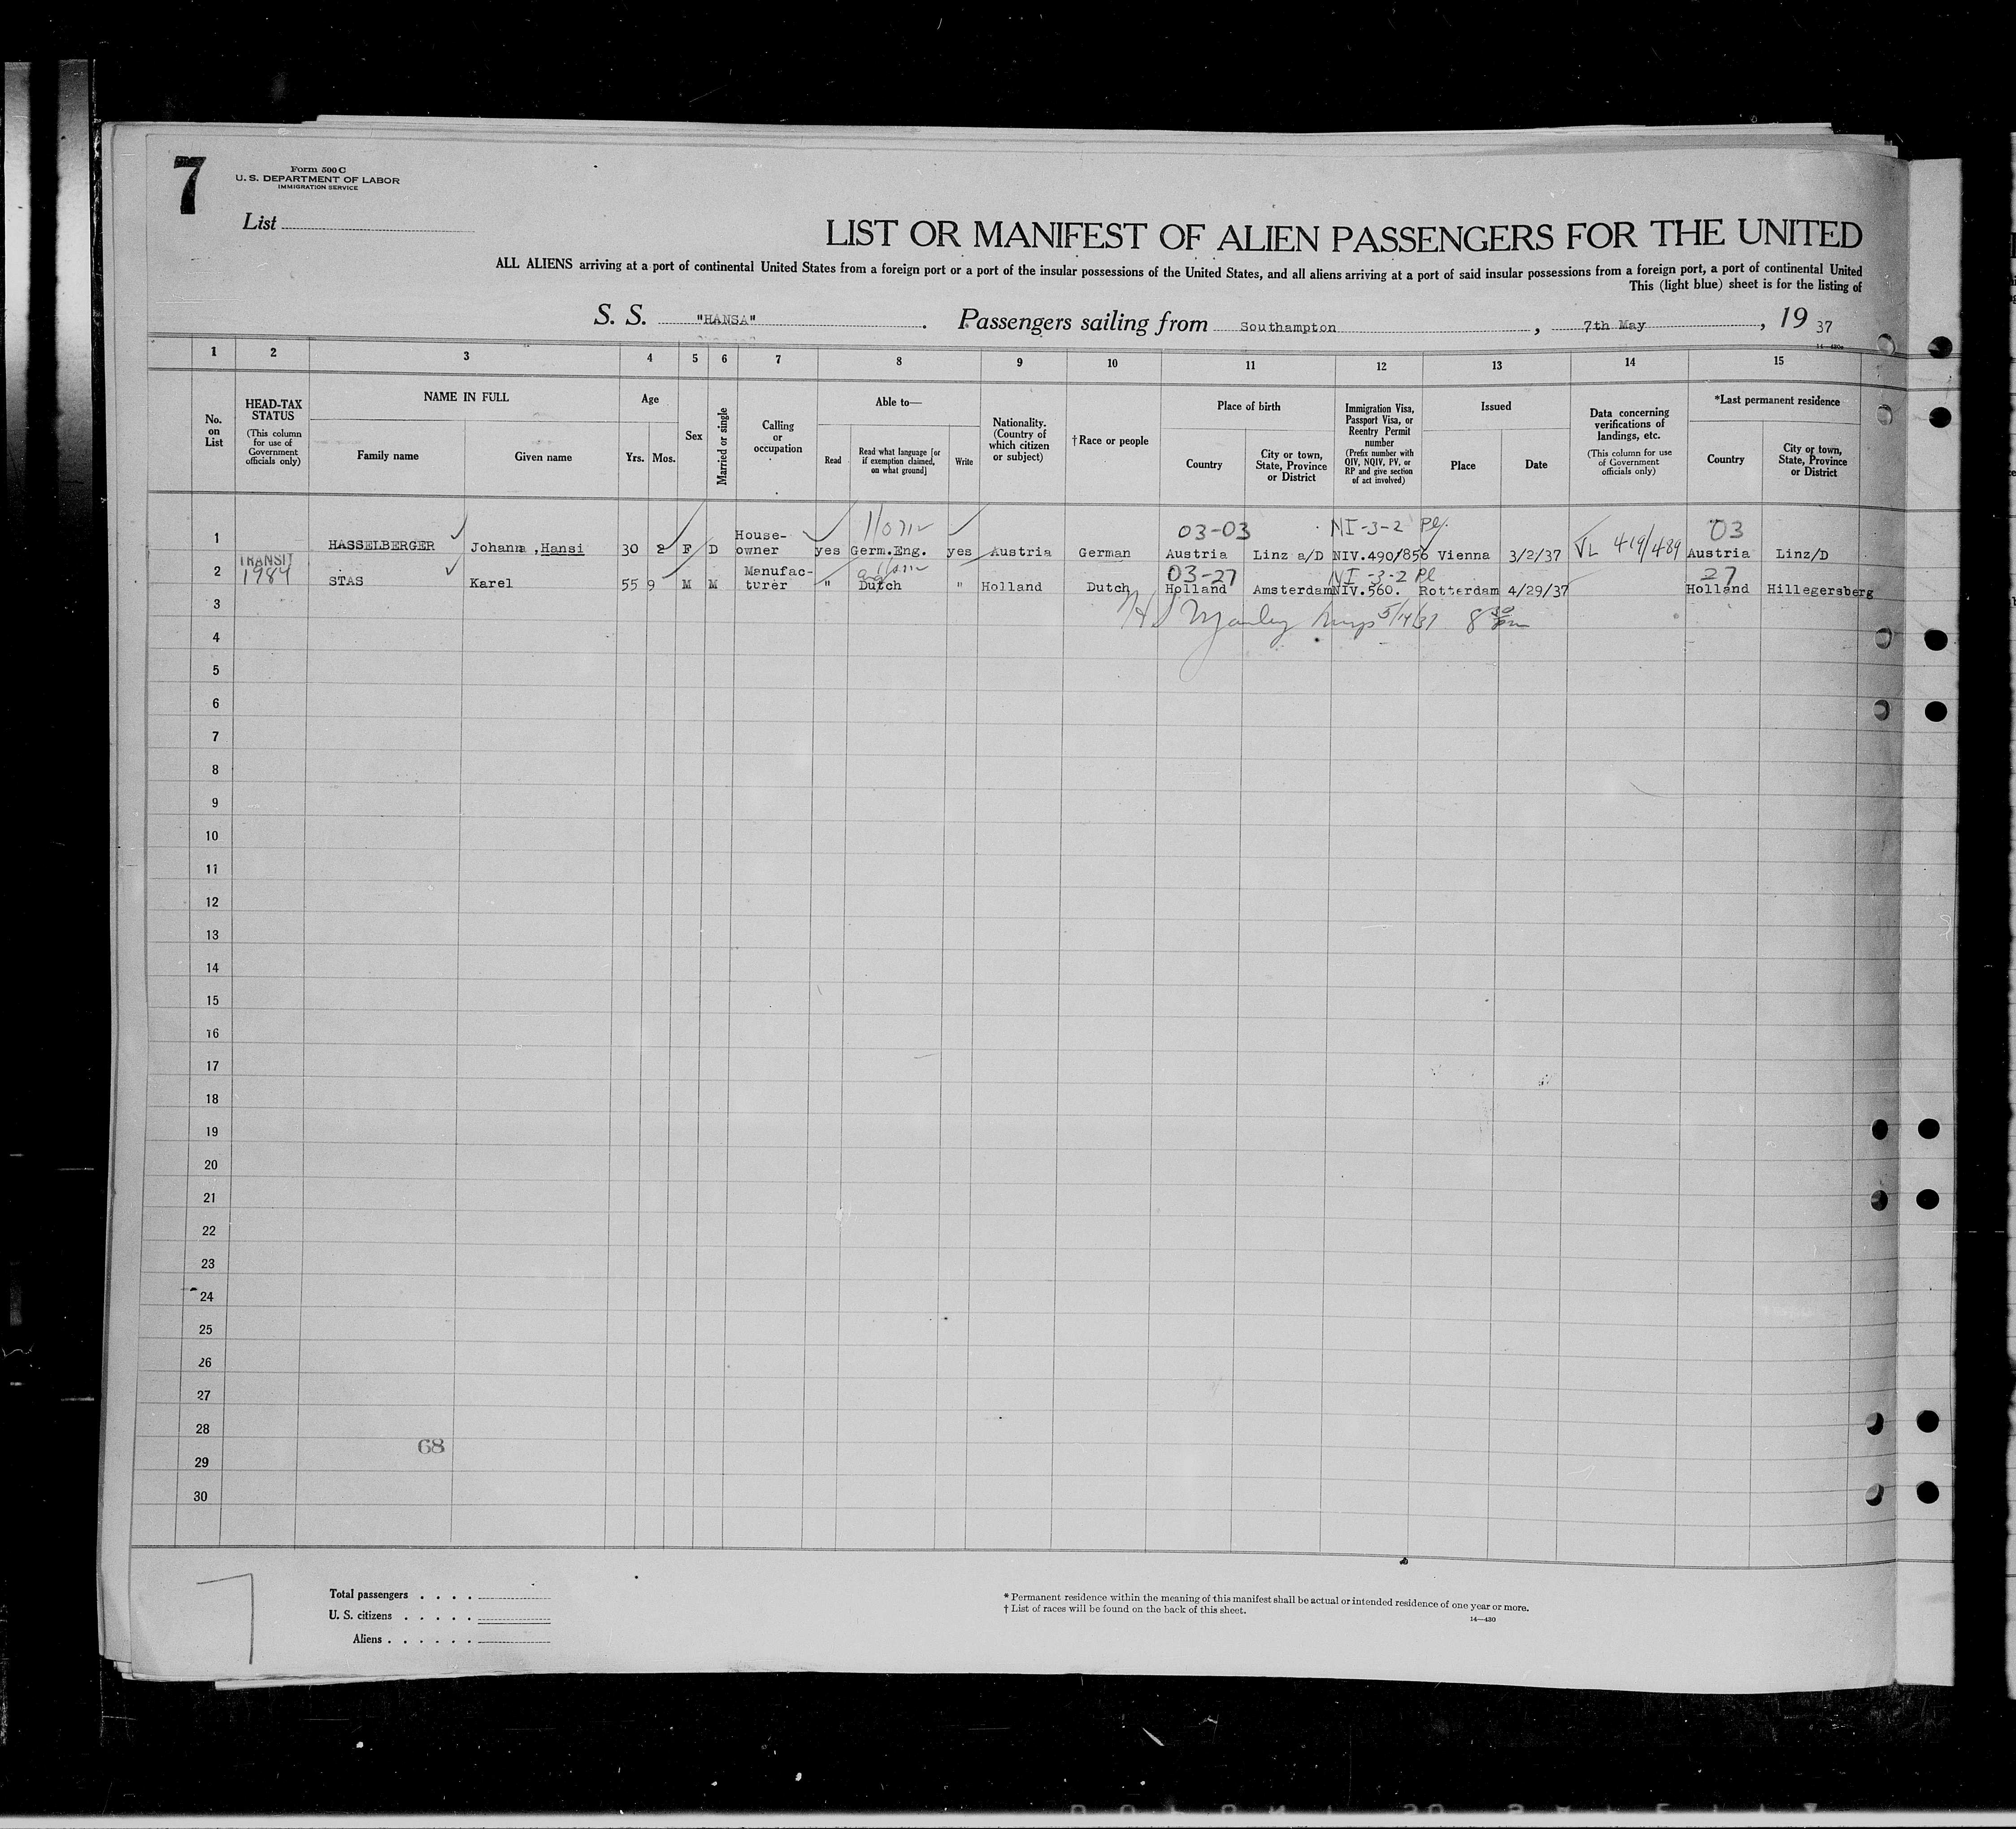 7
Form 500 C
U. S. DEPARTMENT OF LABOR
IMMIGRATION SERVICE
List
LIST OR MANIFEST OF ALIEN PASSENGERS FOR THE UNITED
ALL ALIENS arriving at a port of continental United States from a foreign port or a port of the insular possessions of the United States, and all aliens arriving at a port of said insular possessions from a foreign port, a port of continental United
This (light blue) sheet is for the listing of
S. S. "HANSA". Passengers sailing from Southampton, 7th May, 19 37
1 2 3 4 5 6 7 8 9 10 11 12 13 14 15
No. on List
HEAD-TAX STATUS (This column for use of Government officials only)
NAME IN FULL
Family name Given name
Age
Yrs. Mos.
Sex
Married or single
Calling or occupation
Able to—
Read
Read what language [or if exemption claimed, on what ground]
Write
Nationality. (Country of which citizen or subject)
† Race or people
Place of birth
Country
City or town, State, Province or District
Immigration Visa, Passport Visa, or Reentry Permit number (Prefix number with QIV, NQIV, PV, or RP and give section of act involved)
Issued
Place Date
Data concerning verifications of landings, etc. (This column for use of Government officials only)
*Last permanent residence
Country
City or town, State, Province or District
03-03 NI-3-2 Pl. 03
1 HASSELBERGER Johanna ,Hansi 30 2 F D House-owner yes Germ.Eng. yes Austria German Austria Linz a/D NIV.490/856 Vienna 3/2/37 VL 419/489 Austria Linz/D
TRANSIT
1984
03-27 NI-3-2 Pl 27
2 STAS Karel 55 9 M M Manufac-turer " Dutch " Holland Dutch Holland Amsterdam NIV.560. Rotterdam 4/29/37 Holland Hillegersberg
3
5/14/37 8 30 pm
4
5
6
7
8
9
10
11
12
13
14
15
16
17
18
19
20
21
22
23
24
25
26
27
28
68
29
30
7
Total passengers . . . .
U. S. citizens . . . . .
Aliens . . . . . .
* Permanent residence within the meaning of this manifest shall be actual or intended residence of one year or more.
† List of races will be found on the back of this sheet.
14—430